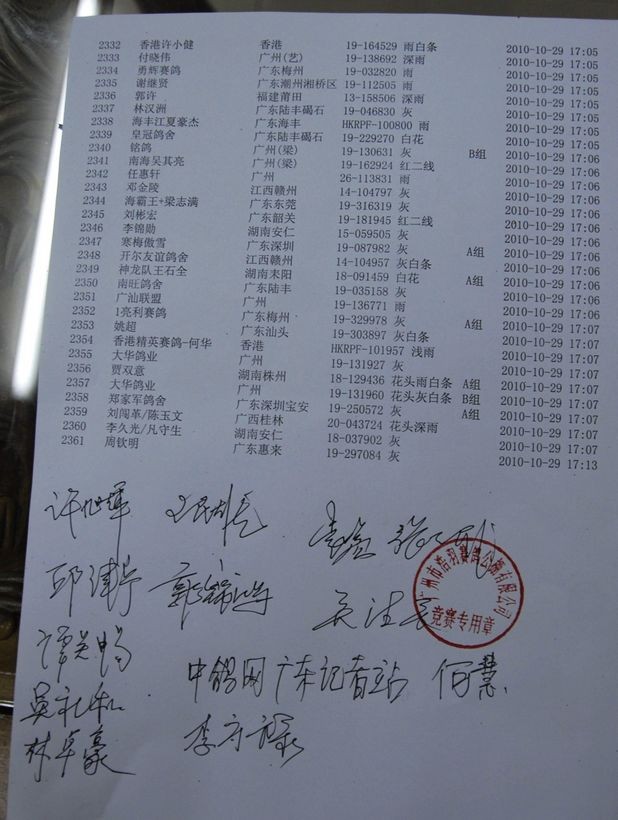 2332 香港许小健 香港 19-164529 雨白条 2010-10-29 17:05
2333 付晓伟 广州(艺) 19-138692 深雨 2010-10-29 17:05
2334 勇辉赛鸽 广东梅州 19-032820 雨 2010-10-29 17:05
2335 谢继贤 广东潮州湘桥区 19-112505 雨 2010-10-29 17:05
2336 郭许 福建莆田 13-158506 深雨 2010-10-29 17:05
2337 林汉洲 广东陆丰碣石 19-046830 灰 2010-10-29 17:05
2338 海丰江夏豪杰 广东海丰 HKRPF-100800 雨 2010-10-29 17:05
2339 皇冠鸽舍 广东陆丰碣石 19-229270 白花 2010-10-29 17:05
2340 铭鸽 广州(梁) 19-130631 灰 B组 2010-10-29 17:06
2341 南海吴其亮 广州(梁) 19-162924 红二线 2010-10-29 17:06
2342 任惠轩 广州 26-113831 雨 2010-10-29 17:06
2343 邓金陵 江西赣州 14-104797 灰 2010-10-29 17:06
2344 海霸王+梁志满 广东东莞 19-316319 灰 2010-10-29 17:06
2345 刘彬宏 广东韶关 19-181945 红二线 2010-10-29 17:06
2346 李锦勋 湖南安仁 15-059505 灰 2010-10-29 17:06
2347 寒梅傲雪 广东深圳 19-087982 灰 A组 2010-10-29 17:06
2348 开尔友谊鸽舍 江西赣州 14-104957 灰白条 2010-10-29 17:06
2349 神龙队王石全 湖南耒阳 18-091459 白花 A组 2010-10-29 17:06
2350 南旺鸽舍 广东陆丰 19-035158 灰 2010-10-29 17:06
2351 广汕联盟 广州 19-136771 雨 2010-10-29 17:06
2352 1亮利赛鸽 广东梅州 19-329978 灰 A组 2010-10-29 17:07
2353 姚超 广东汕头 19-303897 灰白条 2010-10-29 17:07
2354 香港精英赛鸽-何华 香港 HKRPF-101957 浅雨 2010-10-29 17:07
2355 大华鸽业 广州 19-131927 灰 2010-10-29 17:07
2356 贾双意 湖南株州 18-129436 花头雨白条 A组 2010-10-29 17:07
2357 大华鸽业 广州 19-131960 花头灰白条 B组 2010-10-29 17:07
2358 郑家军鸽舍 广东深圳宝安 19-250572 灰 A组 2010-10-29 17:07
2359 刘闯革/陈玉文 广西桂林 20-043724 花头深雨 2010-10-29 17:07
2360 李久光/凡守生 湖南安仁 18-037902 灰 2010-10-29 17:07
2361 周钦明 广东惠来 19-297084 灰 2010-10-29 17:13
许旭辉
广州市浩羽赛鸽公棚有限公司
竞赛专用章
中鸽网广东记者站 何慧
林卓豪 李守禄